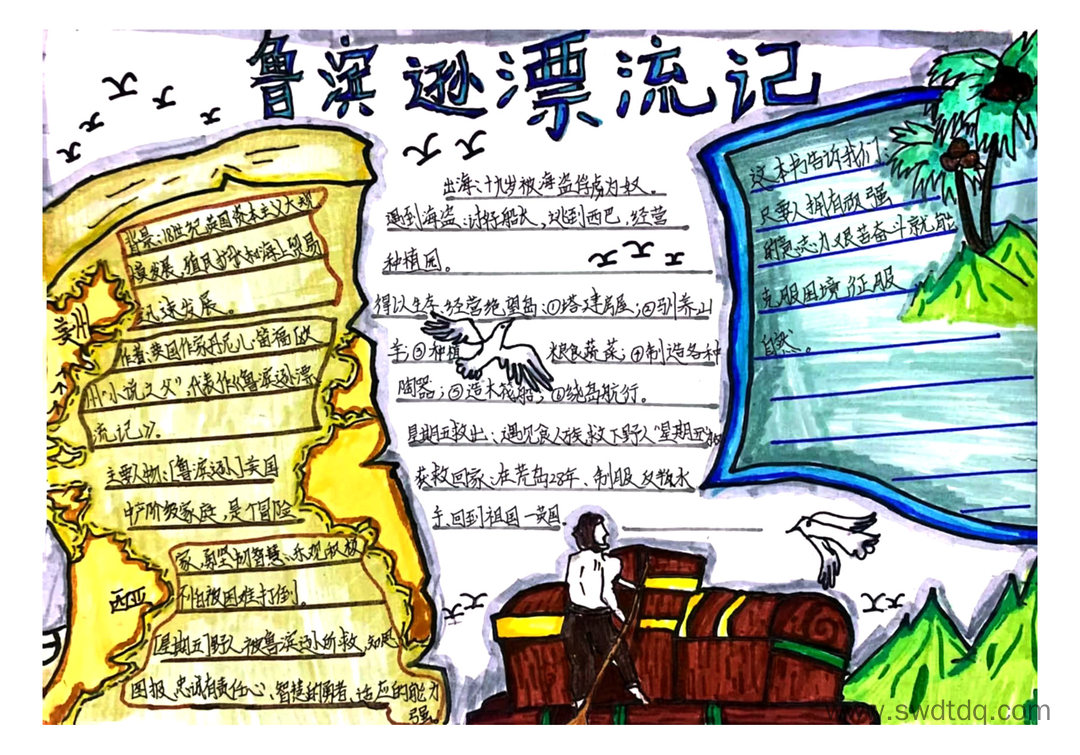 鲁滨逊漂流记
背景:18世纪英国资本主义大规
模发展,殖民扩张和海上贸易
迅速发展。
作者:英国作家丹尼儿·笛福,欧
州“小说之父”,代表作《鲁滨逊漂
流记》。
主要人物:[鲁滨逊]英国
中产阶级家庭,是个冒险
家,勇坚韧智慧、乐观积极
不怕被困难打倒。
[星期五]野人,被鲁滨逊所救,知恩
图报,忠诚有责任心,智慧的勇者,适应的能力
强
美州
西亚
出海:十九岁被海盗俘虏为奴。
遇到海盗:讨好船长,逃到西巴,经营
种植园。
得以生存,经营绝望岛:①塔建房屋;②驯养山
羊;③种植 粮食蔬菜;④制造各种
陶器;⑤造木筏船;⑥绕岛航行。
星期五救出:遇见食人族救下野人“星期五”
获救回家:在荒岛28年、制服 叛水
手,回到祖国一英国
这本书告诉我们:
只要人拥有顽强
的意志力艰苦奋斗就能
克服困境征服
自然。
www.swdtdq.com